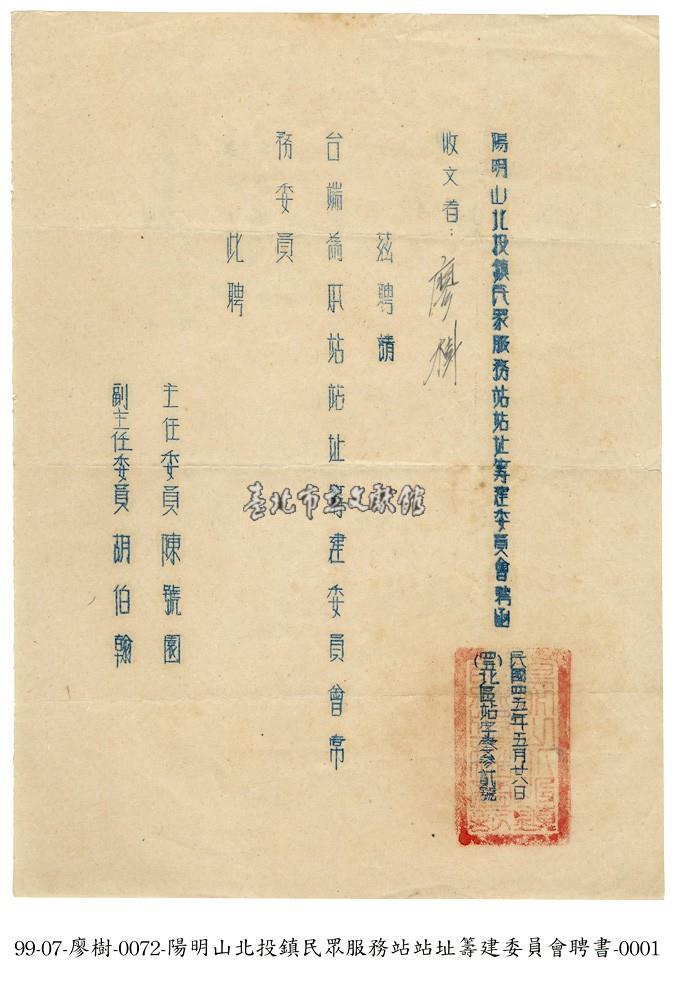 陽明山北投鎮民眾服務站站址籌建委員會聘函
民國四五年五月廿八日
北區站字第叁貳號
收文者：廖樹
茲聘請
台端為本站站址籌建委員會常
務委員
此聘
主任委員陳號園
副主任委員胡伯翰
臺北市立文獻館
99-07-廖樹-0072-陽明山北投鎮民眾服務站站址籌建委員會聘書-0001